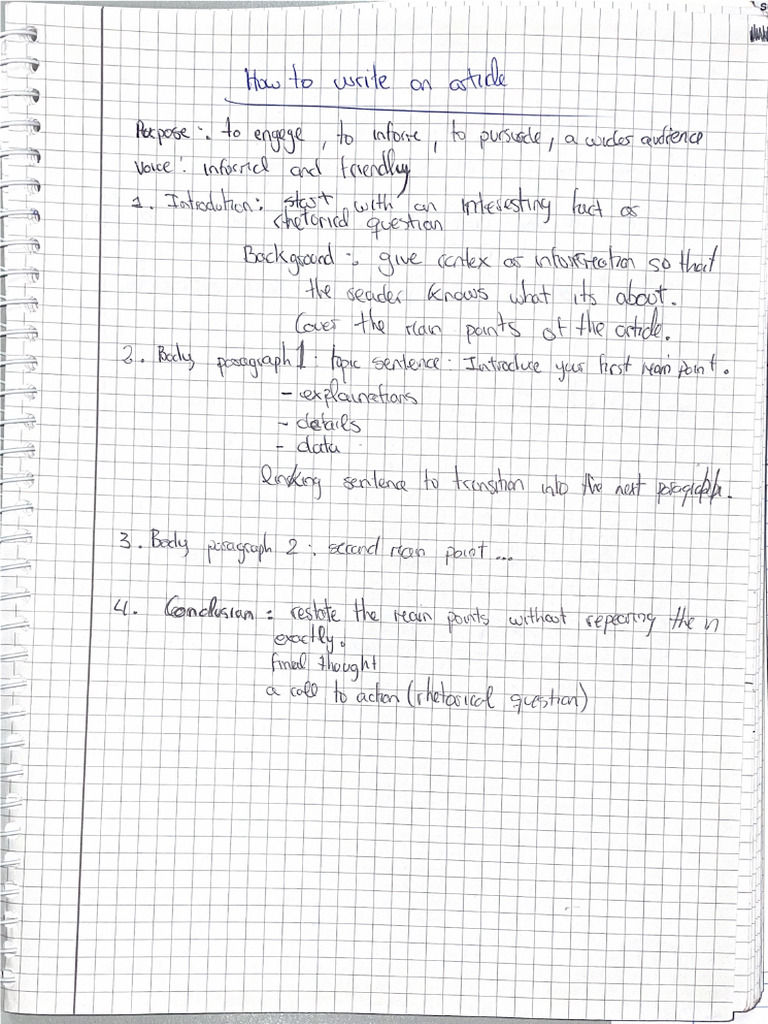 How to write an article
Purpose : to engage , to inform , to pursuade , a wider audience
Voice : informal and friendly
1. Introdution : start with an interesting fact or
rhetorical question
Background : give contex or information so that
the reader knows what its about.
Cover the main points of the article.
2. Body paragraph 1 : topic sentence : Introduce your first main point .
- explainations
- details
- data
linking sentence to transition into the next paragraph.
3. Body paragraph 2 : second main point ...
4. Conclusion : restate the main points without repearing them
exactly.
final thought
a call to action (rhetorical question)